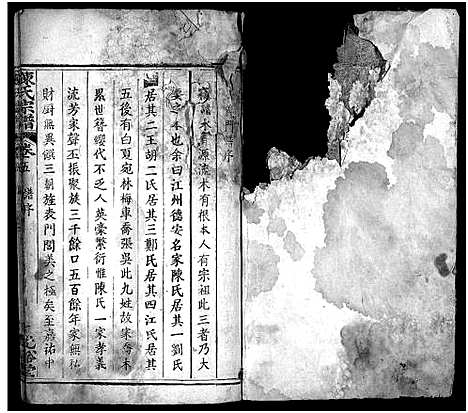 門譜序
竊謂水有源流木有根本人有宗祖此三者乃大
婆之本也余曰江州德安名家陳氏居其一劉氏
居其二王胡二氏居其三鄭氏居其四江氏居其
五後有白夏宛林梅車喬張吳此九姓故宋
累世簪纓代不乏人英豪繁衍惟陳氏一家孝義
流芳家聲丕振聚族三千餘口五百餘年家無
財厨無異饌三朝旌表門閭美之極矣至嘉祐中
陳氏宗譜
卷五
譜序